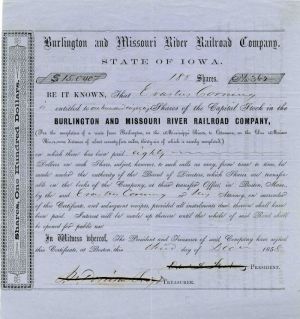 Burlington and Missouri River Railroad Company,
STATE OF IOWA.
$15,040
188 Shares.
BE IT KNOWN, That Erastus Corning
is entitled to one hundred eighty eight Shares of the Capital Stock in the
BURLINGTON AND MISSOURI RIVER RAILROAD COMPANY,
(For the completion of a road from Burlington, on the Mississippi River, to Ottumwa, on the Des Moines
River, a distance of about seventy-five miles, thirty-five of which is nearly completed,)
on which there has been paid eighty
Dollars on each Share, subject, however, to such calls as may, from time to time, be made
under the authority of the Board of Directors, which Shares are transfer-
able on the books of the Company, at their transfer Office, in Boston, Mass.,
by the said Erastus Corning or his Attorney, on surrender of
this Certificate, and subsequent receipts, provided all instalments then due shall have
been paid. Interest will be made up thereon until the whole of said Road shall
be opened for public use.
In Witness whereof, The President and Treasurer of said Company have signed
this Certificate, at Boston, this third day of Dec 185
PRESIDENT.
TREASURER.
Shares One Hundred Dollars.